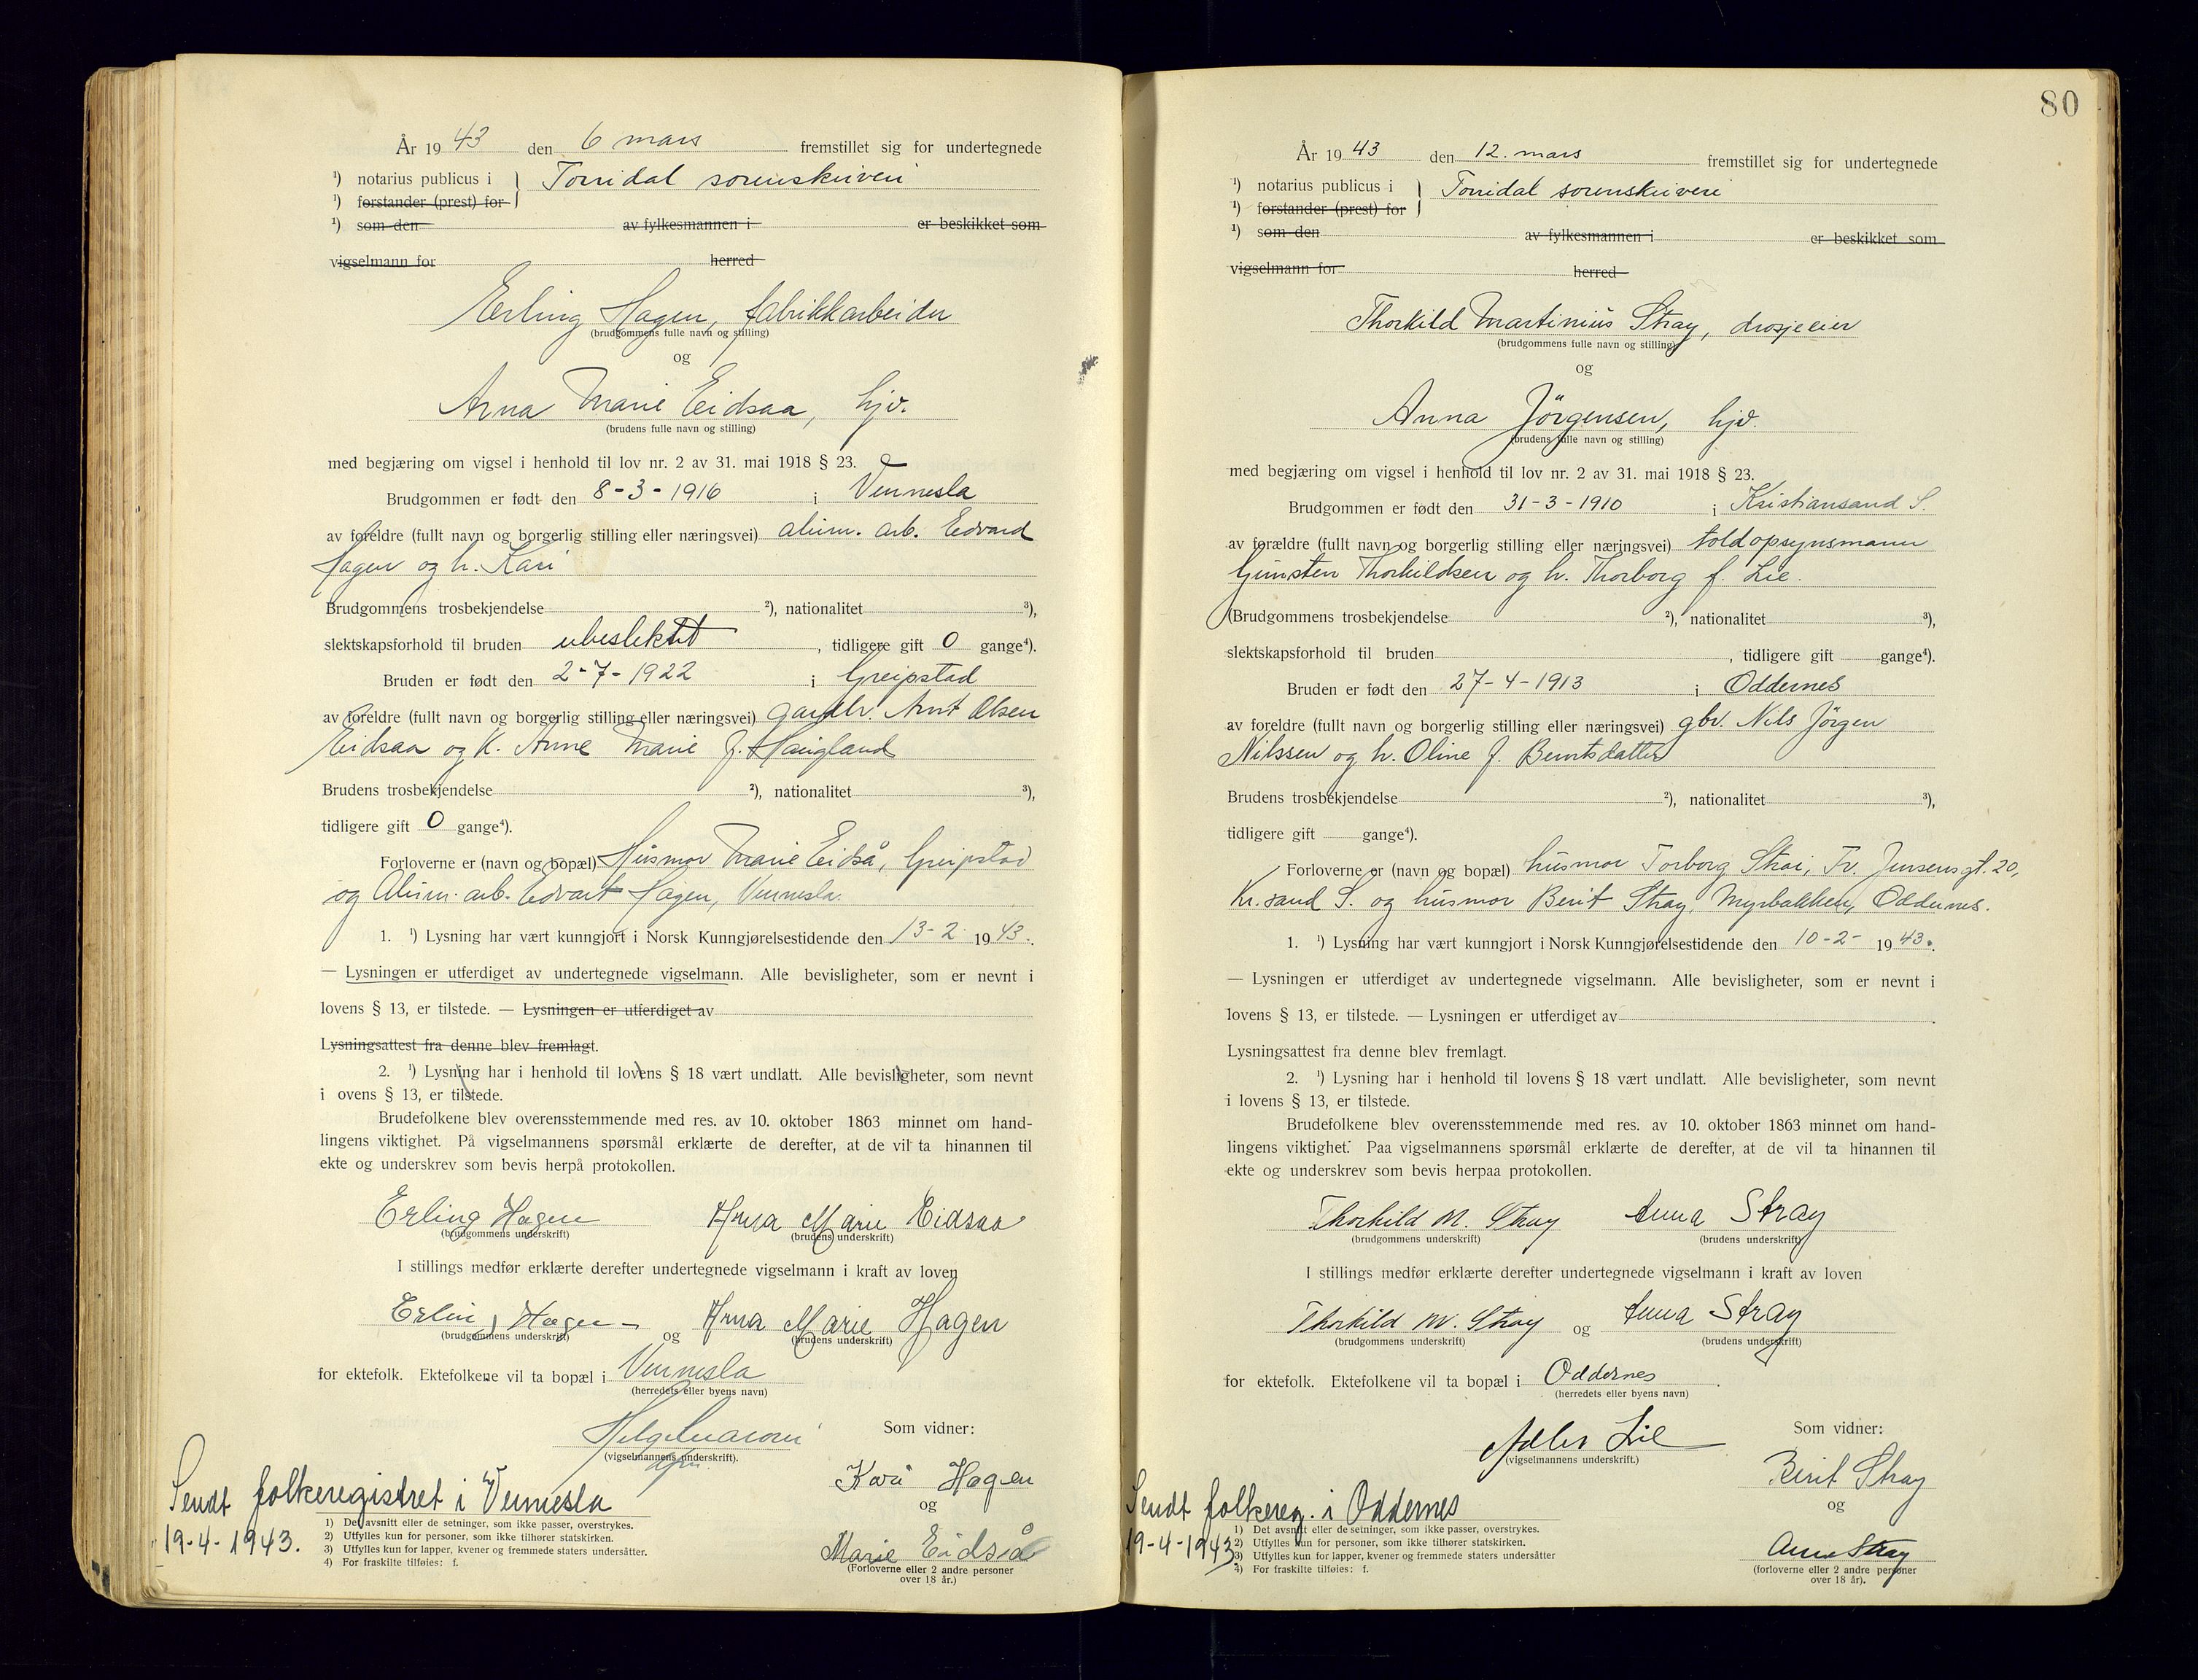 År 19 43 den 6 mars fremstillet sig for undertegnede
1) notarius publicus i } Torridal sorenskriveri
1) forstander (prest) for
1) som den av fylkesmannen i er beskikket som
vigselmann for herred
Erling Hagen, fabrikkarbeider
(brudgommens fulle navn og stilling)
og
Arna Marie Eidsaa, hjv.
(brudens fulle navn og stilling)
med begjæring om vigsel i henhold til lov nr. 2 av 31. mai 1918 § 23.
Brudgommen er født den 8-3-1916 i Vennesla
av foreldre (fullt navn og borgerlig stilling eller næringsvei) alum. arb. Edvard
Hagen og h. Kari
Brudgommens trosbekjendelse 2), nationalitet 3),
slektskapsforhold til bruden ubeslektet, tidligere gift 0 gange4).
Bruden er født den 2-7-1922 i Greipstad
av foreldre (fullt navn og borgerlig stilling eller næringsvei) gardbr. Arnt Olsen
Eidsaa og h. Anne Marie f. Haugland
Brudens trosbekjendelse 2), nationalitet 3),
tidligere gift 0 gange4).
Forloverne er (navn og bopæl) Husmor Marie Eidså, Greipstad
og Alum. arb. Edvart Hagen, Vennesla.
1. 1) Lysning har vært kunngjort i Norsk Kunngjørelsestidende den 13-2 19 43.
— Lysningen er utferdiget av undertegnede vigselmann. Alle bevisligheter, som er nevnt i
lovens § 13, er tilstede. — Lysningen er utferdiget av
Lysningsattest fra denne blev fremlagt.
2. 1) Lysning har i henhold til lovens § 18 vært undlatt. Alle bevisligheter, som nevnt
i ovens § 13, er tilstede.
Brudefolkene blev overensstemmende med res. av 10. oktober 1863 minnet om hand-
lingens viktighet. På vigselmannens spørsmål erklærte de derefter, at de vil ta hinannen til
ekte og underskrev som bevis herpå protokollen.
Erling Hagen Arna Marie Eidsaa
(brudgommens underskrift) (brudens underskrift)
I stillings medfør erklærte derefter undertegnede vigselmann i kraft av loven
Erling Hagen og Arna Marie Hagen
(brudgommens underskrift) (brudens underskrift)
for ektefolk. Ektefolkene vil ta bopæl i Vennesla
(herredets eller byens navn)
Som vidner:
(vigselmannens underskrift).
Kari Hagen
og
Marie Eidså
(Forloverne eller 2 andre personer
over 18 år.)
Sendt folkeregistret i Vennesla
19-4-1943.
1) Det avsnitt eller de setninger, som ikke passer, overstrykes.
2) Utfylles kun for personer, som ikke tilhører statskirken.
3) Utfylles kun for lapper, kvener og fremmede staters undersåtter.
4) For fraskilte tilføies: f.
80
År 19 43 den 12. mars fremstillet sig for undertegnede
1) notarius publicus i } Torridal sorenskriveri
1) forstander (prest) for
1) som den av fylkesmannen i er beskikket som
vigselmann for herred
Thorkild Martinius Stray, drosjeeier
(brudgommens fulle navn og stilling)
og
Anna Jörgensen, hjv.
(brudens fulle navn og stilling)
med begjæring om vigsel i henhold til lov nr. 2 av 31. mai 1918 § 23.
Brudgommen er født den 31-3-1910 i Kristiansand S.
av forældre (fullt navn og borgerlig stilling eller næringsvei) toldopsynsmann
Gunsten Thorkildsen og h. Thorborg f. Lie.
(Brudgommens trosbekjendelse 2), nationalitet 3),
slektskapsforhold til bruden , tidligere gift gange4).
Bruden er født den 27-4-1913 i Oddernes
av foreldre (fullt navn og borgerlig stilling eller næringsvei) gbr. Nils Jörgen
Nilssen og h. Oline f. Berntsdatter
Brudens trosbekjendelse 2), nationalitet 3),
tidligere gift gange4).
Forloverne er (navn og bopæl) husmor Torborg Strai, Fr. Jensensgt. 20,
Kr.sand S. og husmor Berit Stray, Myrbakken, Oddernes.
1. 1) Lysning har vært kunngjort i Norsk Kunngjørelsestidende den 10-2- 19 43.
— Lysningen er utferdiget av undertegnede vigselmann. Alle bevisligheter, som er nevnt i
lovens § 13, er tilstede. — Lysningen er utferdiget av .
Lysningsattest fra denne blev fremlagt.
2. 1) Lysning har i henhold til lovens § 18 vært undlatt. Alle bevisligheter, som nevnt
i lovens § 13, er tilstede.
Brudefolkene blev overensstemmende med res. av 10. oktober 1863 minnet om hand-
lingens viktighet. Paa vigselmannens spørsmål erklærte de derefter, at de vil ta hinannen til
ekte og underskrev som bevis herpaa protokollen.
Thorkild M. Stray Anna Stray
(brudgommens underskrift) (brudens underskrift)
I stillings medfør erklærte derefter undertegnede vigselmann i kraft av loven
Thorkild M. Stray og Anna Stray
(brudgommens underskrift) (brudens underskrift)
for ektefolk. Ektefolkene vil ta bopæl i Oddernes.
(herredets eller byens navn)
Som vidner:
Adler Lie
(vigselmannens underskrift.)
Berit Stray
og
Anna Stray
(forloverne eller 2 andre personer
over 18 år).
Sendt folkereg. i Oddernes
19-4-1943
1) Det avsnitt eller de setninger, som ikke passer, overstrykes.
2) Utfylles kun for personer, som ikke tilhører statskirken.
3) Utfylles kun for lapper, kvener og fremmede staters undersåtter
4) For fraskilte tilføies: f.